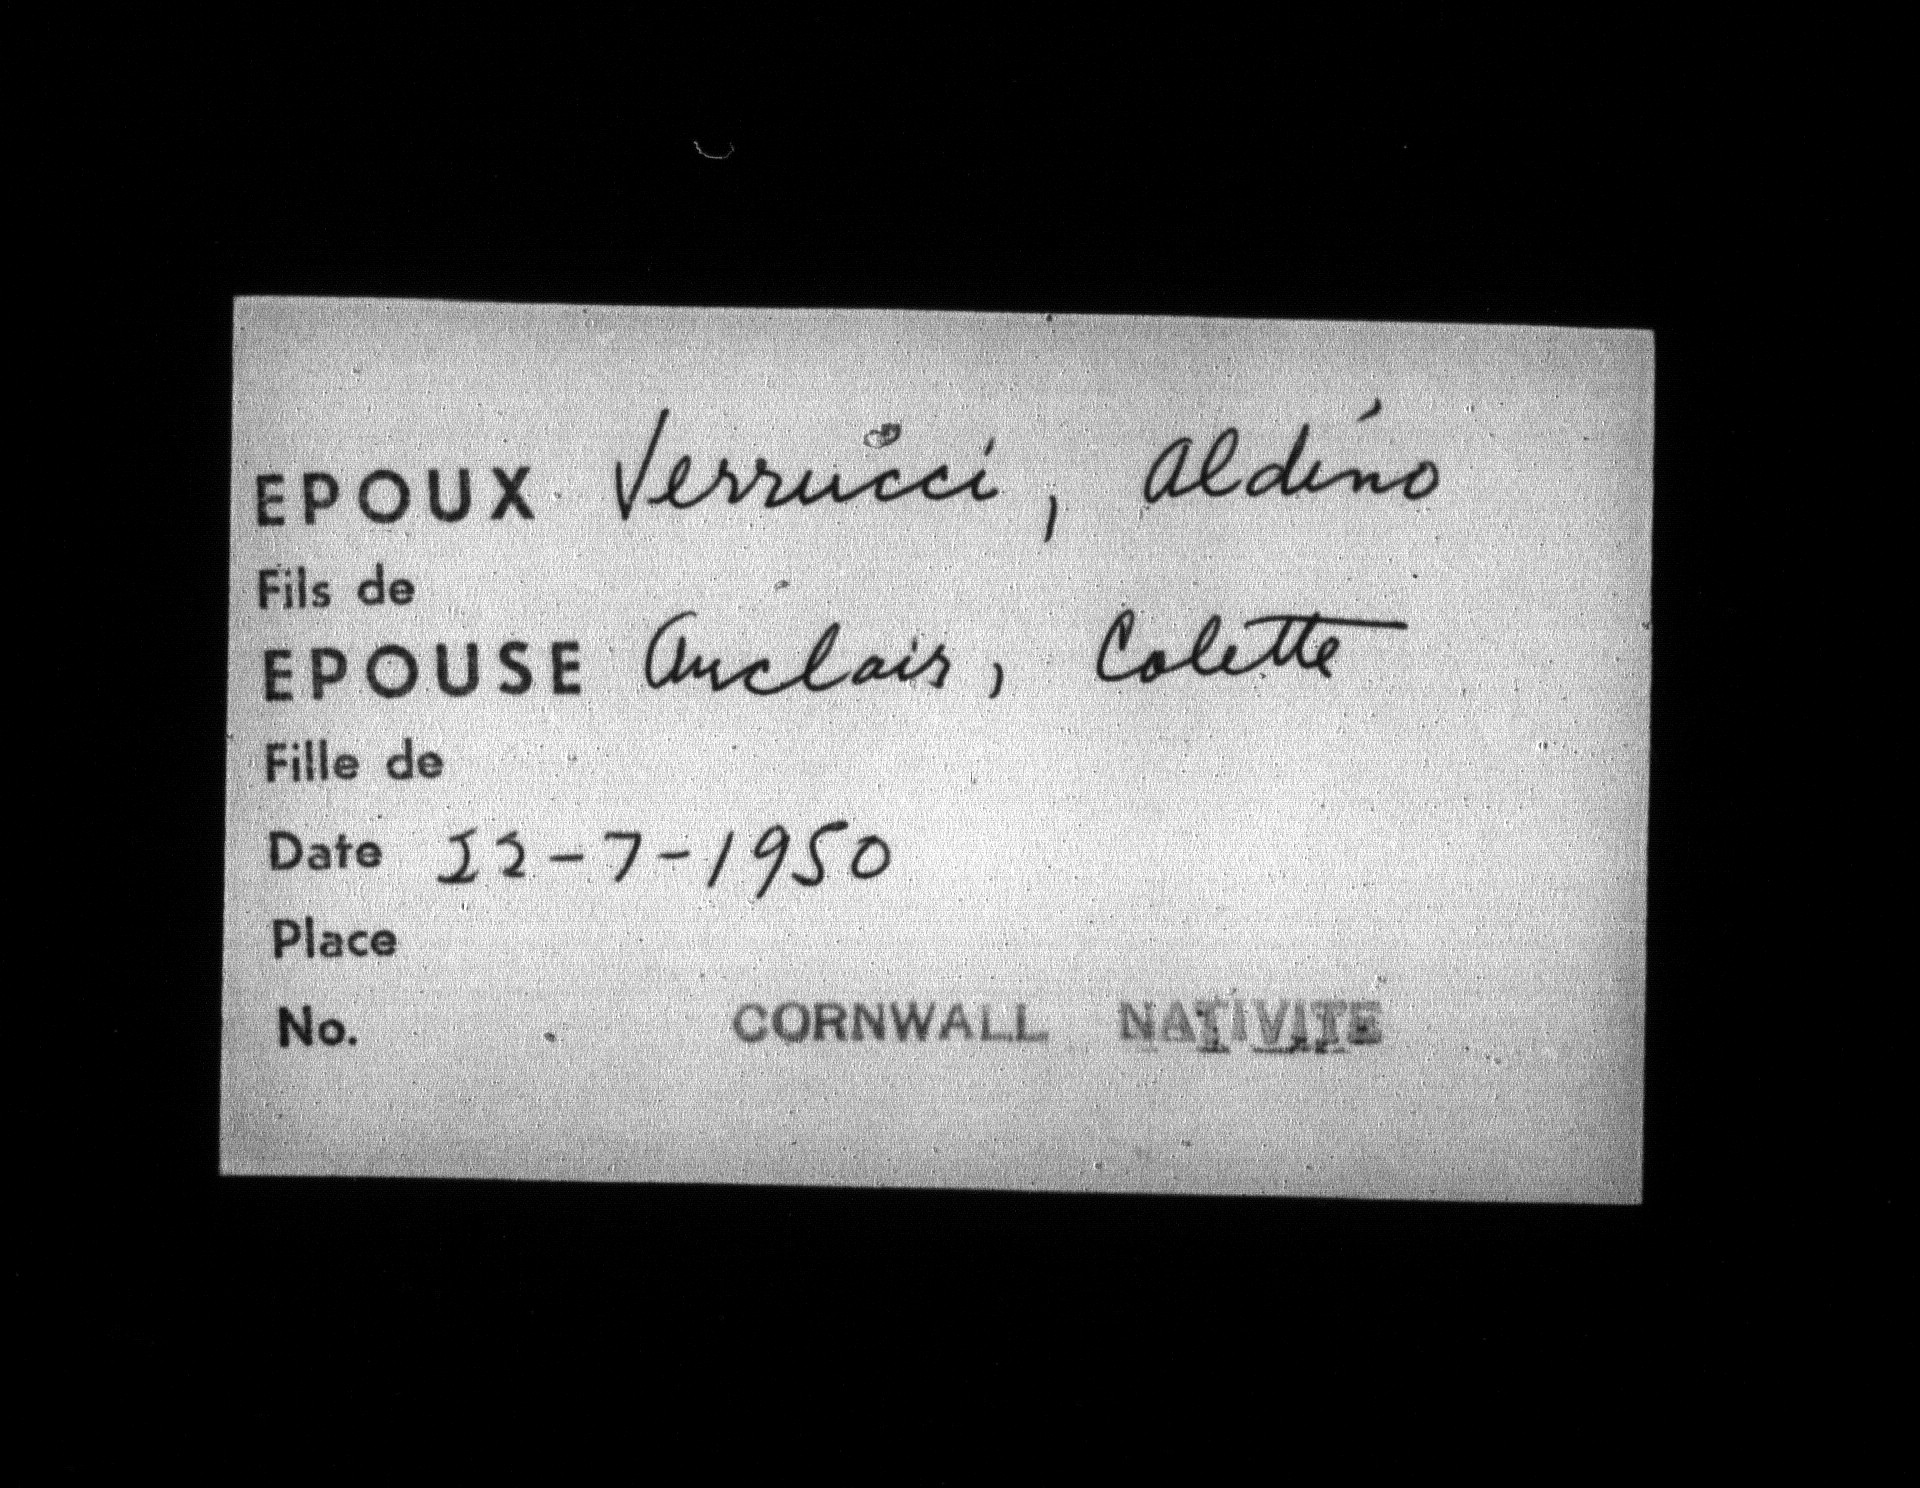 EPOUX Verrucci, Aldino
Fils de
EPOUSE Auclair, Colette
Fille de
Date 22-7-1950
Place
No. CORNWALL NATIVITE